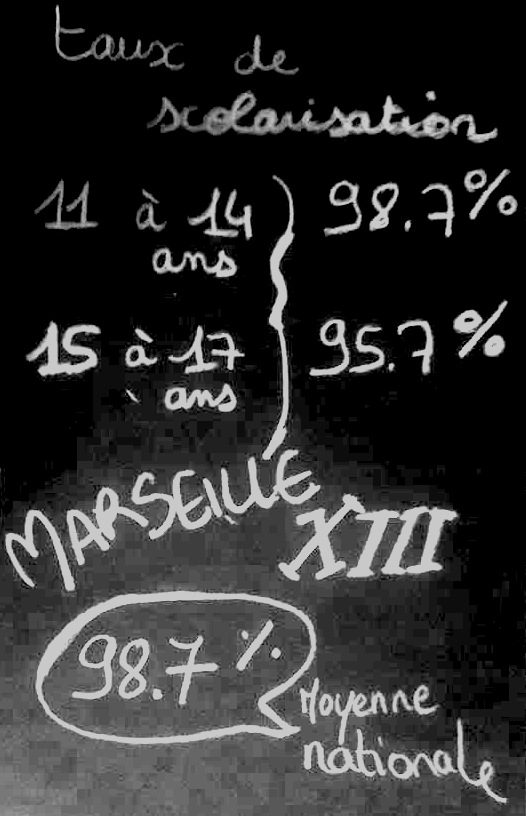 taux de
scolarisation
11 à 14
ans
98.7%
15 à 17
ans
95.7%
MARSEILLE
XIII
98.7%
Moyenne
nationale